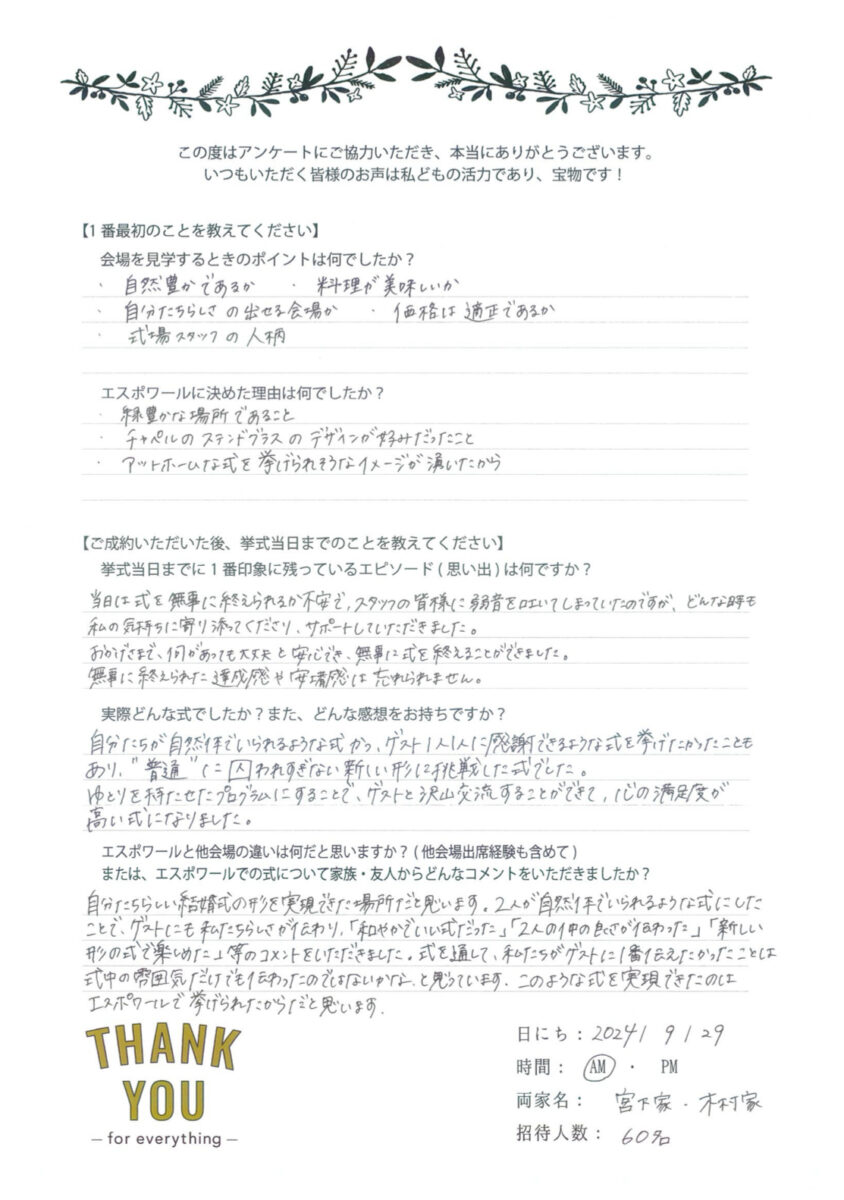 この度はアンケートにご協力いただき、本当にありがとうございます。
いつもいただく皆様のお声は私どもの活力であり、宝物です！
【1番最初のことを教えてください】
会場を見学するときのポイントは何でしたか？
・ 自然豊かであるか ・ 料理が美味しいか
・ 自分たちらしさの出せる会場か ・ 価格は適正であるか
・ 式場スタッフの人柄
エスポワールに決めた理由は何でしたか？
・ 緑豊かな場所であること
・ チャペルのステンドグラスのデザインが好みだったこと
・ アットホームな式を挙げられそうなイメージが湧いたから
【ご成約いただいた後、挙式当日までのことを教えてください】
挙式当日までに1番印象に残っているエピソード(思い出)は何ですか？
当日は式を無事に終えられるか不安で、スタッフの皆様に弱音を吐いてしまっていたのですが、どんな時も
私の気持ちに寄り添ってくださり、サポートしていただきました。
おかげさまで、何があっても大丈夫と安心でき、無事に式を終えることができました。
無事に終えられた達成感や安堵感は忘れられません。
実際どんな式でしたか？また、どんな感想をお持ちですか？
自分たちが自然体でいられるような式かつ、ゲスト1人1人に感謝できるような式を挙げたかったことも
あり、"普通"に囚われすぎない新しい形に挑戦した式でした。
ゆとりを持たせたプログラムにすることで、ゲストと沢山交流することができて、心の満足度が
高い式になりました。
エスポワールと他会場の違いは何だと思いますか？(他会場出席経験も含めて)
または、エスポワールでの式について家族・友人からどんなコメントをいただきましたか？
自分たちらしい結婚式の形を実現できた場所だと思います。2人が自然体でいられるような式にした
ことで、ゲストにも私たちらしさが伝わり、「和やかでいい式だった」「2人の仲の良さが伝わった」「新しい
形の式で楽しめた」等のコメントをいただきました。式を通して、私たちがゲストに1番伝えたかったことは
式中の雰囲気だけでも伝わったのではないかな、と思っています。このような式を実現できたのは
エスポワールで挙げられたからだと思います。
THANK
YOU
– for everything –
日にち：2024/9/29
時間：AM・PM
両家名：宮下家・木村家
招待人数：60名